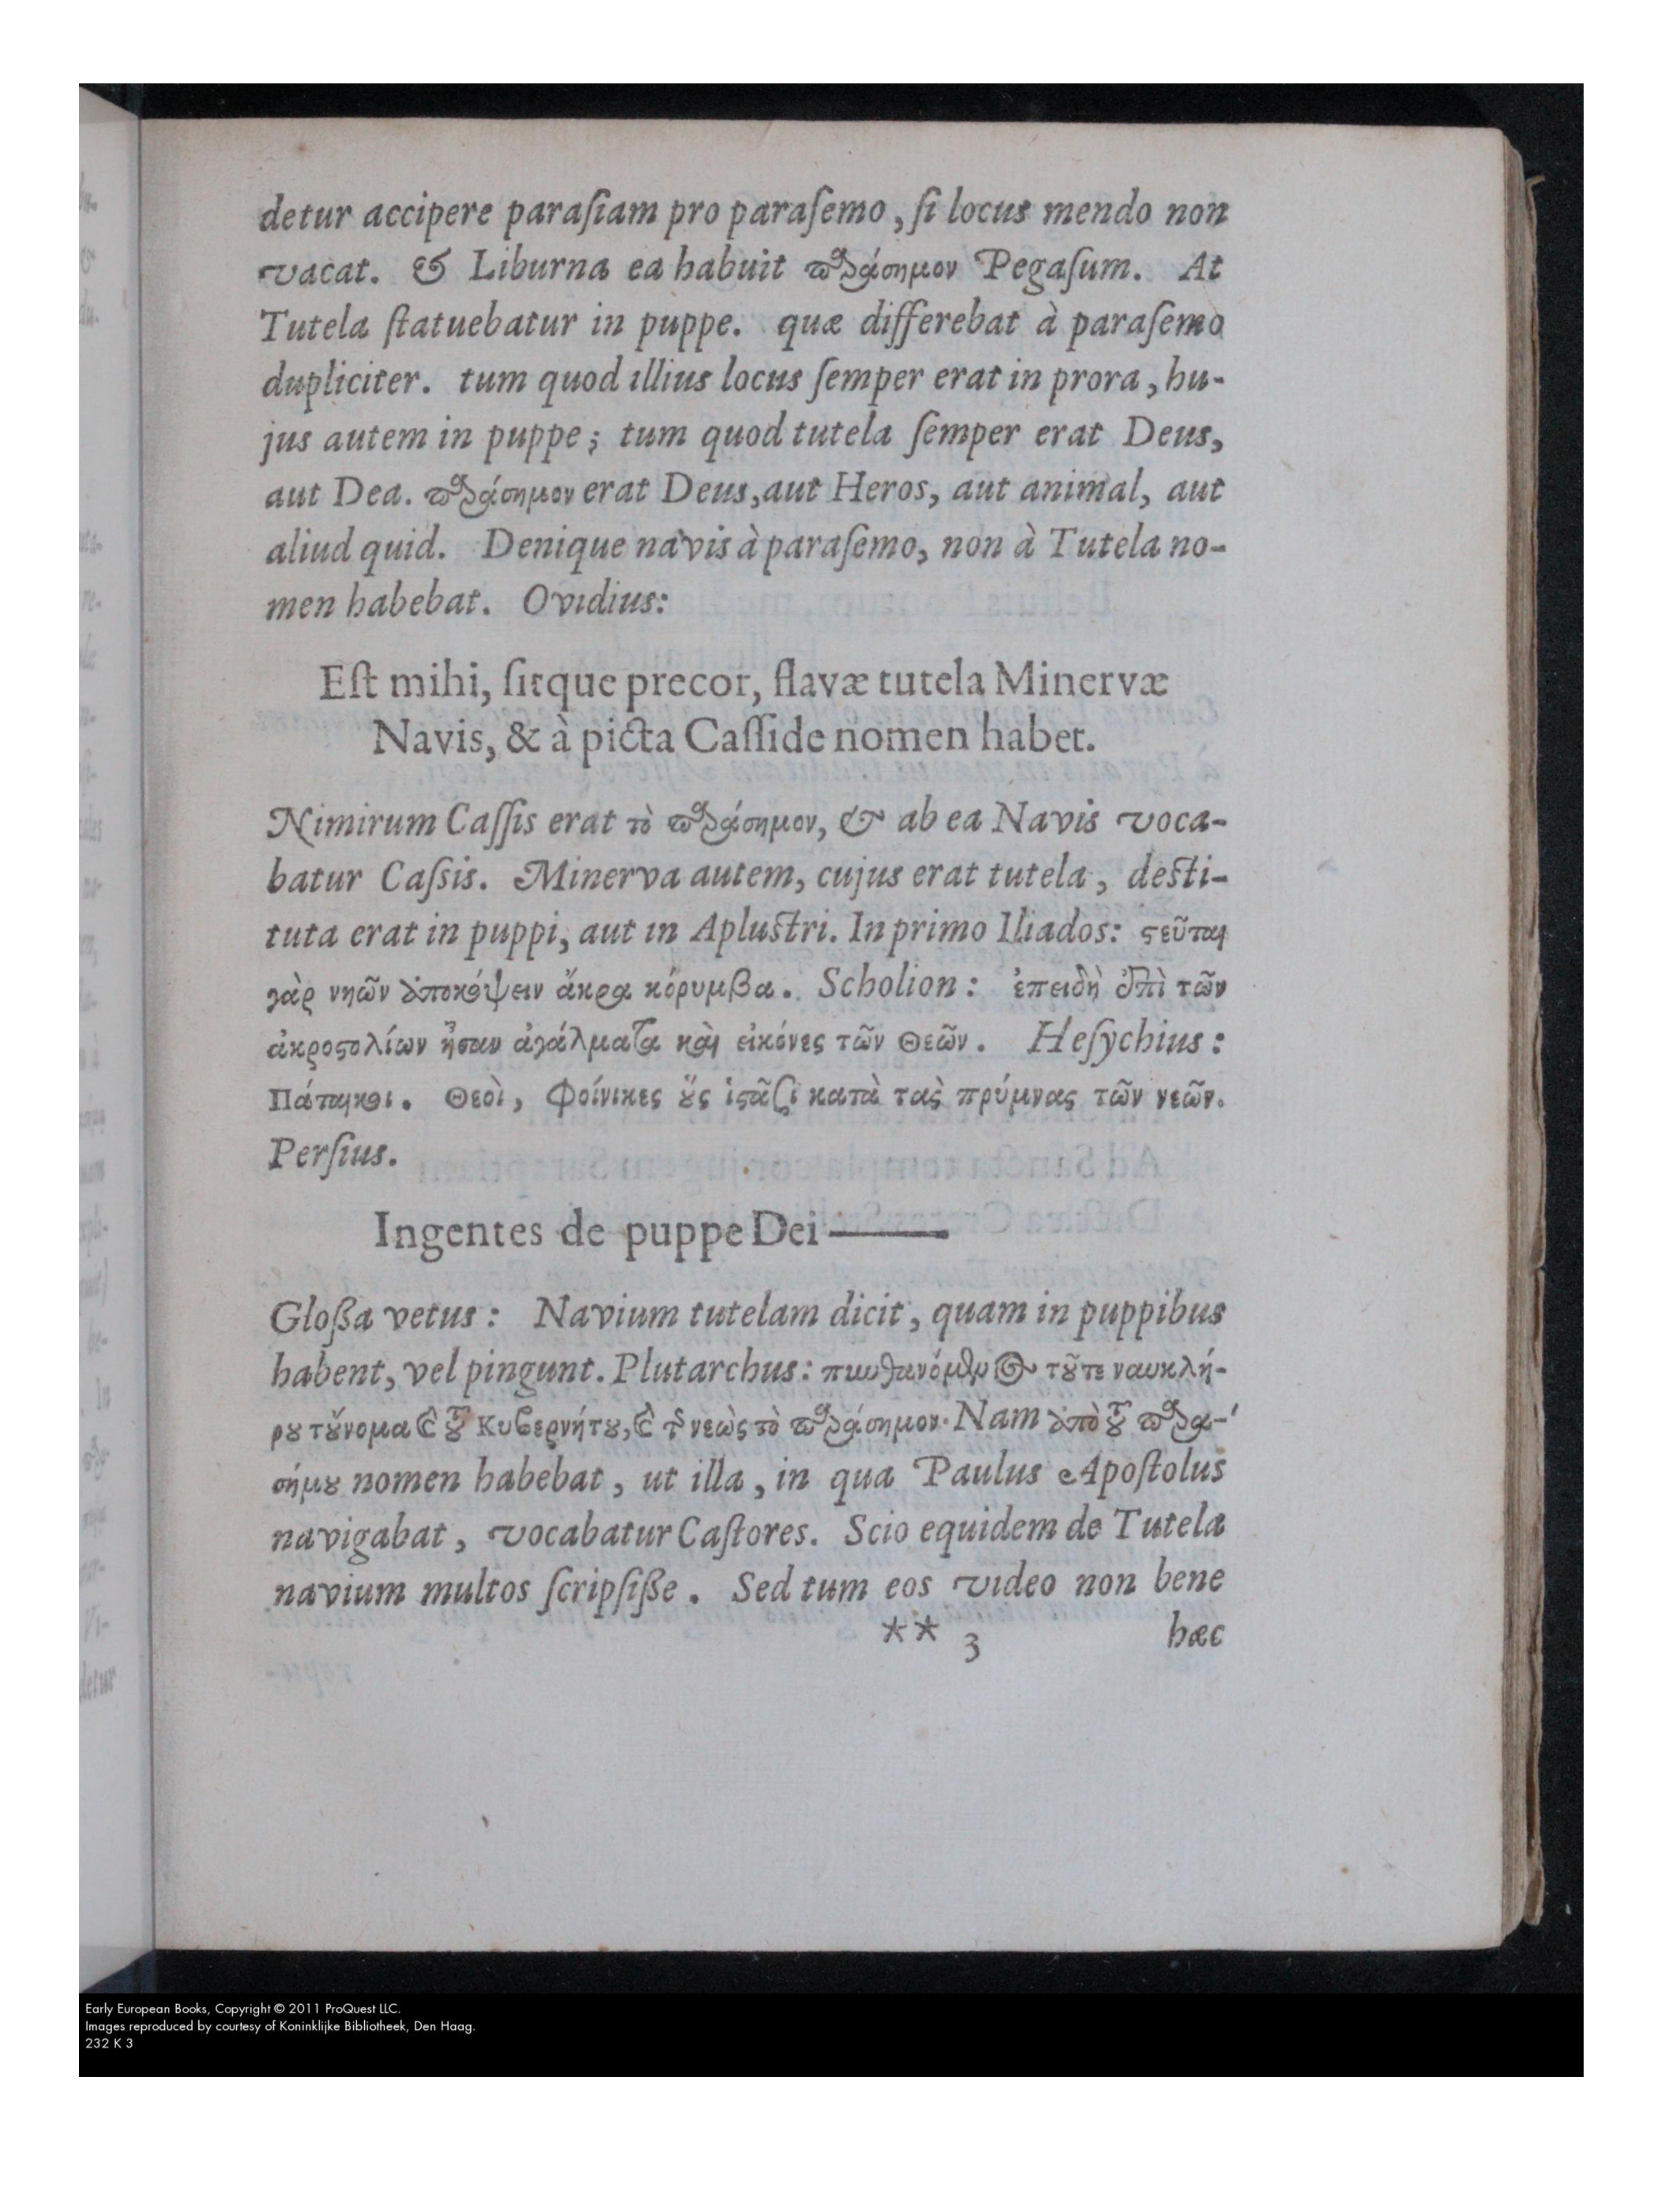 detur accipere paraſiam pro paraſemo, ſi locus mendo non
vacat. & Liburna ea habuit παράσημον Pegaſum. At
Tutela ſtatuebatur in puppe. quæ differebat à paraſemo
dupliciter. tum quod illius locus ſemper erat in prora, hu-
jus autem in puppe; tum quod tutela ſemper erat Deus,
aut Dea. παράσημον erat Deus, aut Heros, aut animal, aut
aliud quid. Denique navis à paraſemo, non à Tutela no-
men habebat. Ovidius:
Eſt mihi, ſitque precor, flavæ tutela Minervæ
Navis, & à picta Caſſide nomen habet.
Nimirum Caſſis erat τὸ παράσημον, & ab ea Navis voca-
batur Caſsis. Minerva autem, cujus erat tutela, deſti-
tuta erat in puppi, aut in Apluſtri. In primo Iliados: ϛεῦται
γὰρ νηῶν ἀποκόψειν ἄκρα κόρυμβα. Scholion: ἐπειδὴ ἐπὶ τῶν
ἀκροϛολίων ἦσαν ἀγάλματα καὶ εἰκόνες τῶν Θεῶν. Heſychius:
Πάταικοι. Θεοὶ, Φοίνικες ȣ̔́ς ἱϛᾶσι κατὰ τὰς πρύμνας τῶν νεῶν.
Perſius.
Ingentes de puppe Dei ———
Gloßa vetus: Navium tutelam dicit, quam in puppibus
habent, vel pingunt. Plutarchus: πυνθανόμενος τȣ͂τε ναυκλή-
ρȣ τȣ̓́νομα καὶ τȣ͂ Κυβερνήτȣ, καὶ τῆς νεὼς τὸ παράσημον. Nam ἀπὸ τȣ͂ παρα-
σήμȣ nomen habebat, ut illa, in qua Paulus Apoſtolus
navigabat, vocabatur Caſtores. Scio equidem de Tutela
navium multos ſcripſiße. Sed tum eos video non bene
** 3 hæc
Early European Books, Copyright © 2011 ProQuest LLC.
Images reproduced by courtesy of Koninklijke Bibliotheek, Den Haag.
232 K 3